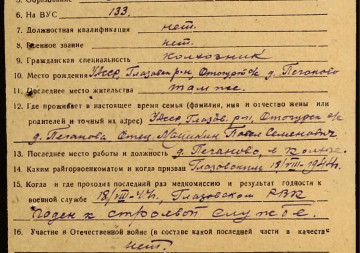 6. На ВУС 133.
7. Должностная квалификация нет.
8. Военное звание нет.
9. Гражданская специальность колхозник
10. Место рождения Уасср, Глазовск. р-н, с/с д. Пеганово
11. Последнее место жительства там же.
12. Где проживает в настоящее время семья (фамилия, имя и отчество жены или
родителей и точный их адрес) Уасср, Глазов. р-н,
д. Пеганова. Отец Павел Семенович.
13. Последнее место работы и должность д. Пеганово, в колхозе.
14. Каким райгорвоенкомато и когда призван Глазовским 18/VIII-1944г.
15. Когда и где проходил последний раз медкомиссию и результат годности к
военной службе 18/VIII-44г. Глазовском РВК
годен к строевой службе.
16. Участие в Отечественной войне (в составе какой последней части в качеств
нет.